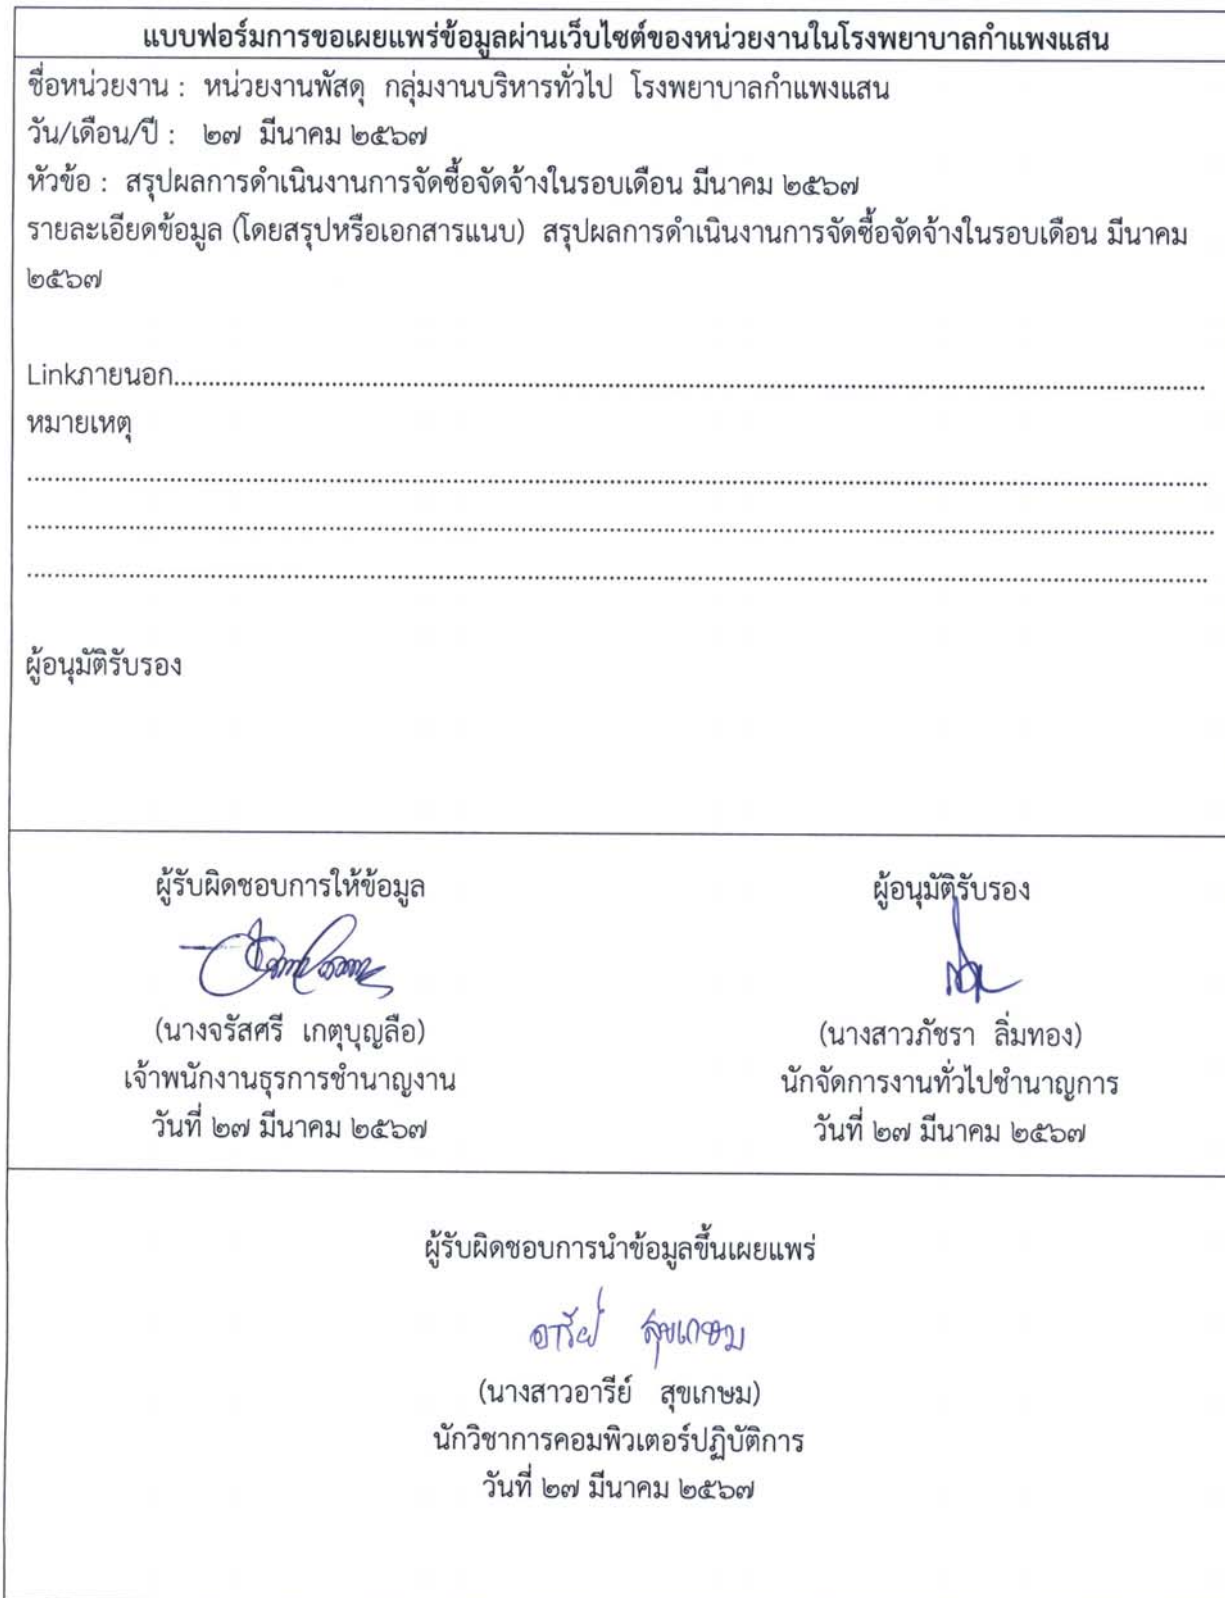 แบบฟอร์มการขอเผยแพร่ข้อมูลผ่านเว็บไซต์ของหน่วยงานในโรงพยาบาลกำแพงแสน
ชื่อหน่วยงาน : หน่วยงานพัสดุ กลุ่มงานบริหารทั่วไป โรงพยาบาลกำแพงแสน
วัน/เดือน/ปี : ๒๗ มีนาคม ๒๕๖๗
หัวข้อ : สรุปผลการดำเนินงานการจัดซื้อจัดจ้างในรอบเดือน มีนาคม ๒๕๖๗
รายละเอียดข้อมูล (โดยสรุปหรือเอกสารแนบ) สรุปผลการดำเนินงานการจัดซื้อจัดจ้างในรอบเดือน มีนาคม
๒๕๖๗
Linkภายนอก
หมายเหตุ
ผู้อนุมัติรับรอง
ผู้รับผิดชอบการให้ข้อมูล
(นางจรัสศรี เกตุบุญลือ)
เจ้าพนักงานธุรการชำนาญงาน
วันที่ ๒๗ มีนาคม ๒๕๖๗
ผู้อนุมัติรับรอง
(นางสาวภัชรา ลิ่มทอง)
นักจัดการงานทั่วไปชำนาญการ
วันที่ ๒๗ มีนาคม ๒๕๖๗
ผู้รับผิดชอบการนำข้อมูลขึ้นเผยแพร่
อารีย์ สุขเกษม
(นางสาวอารีย์ สุขเกษม)
นักวิชาการคอมพิวเตอร์ปฏิบัติการ
วันที่ ๒๗ มีนาคม ๒๕๖๗